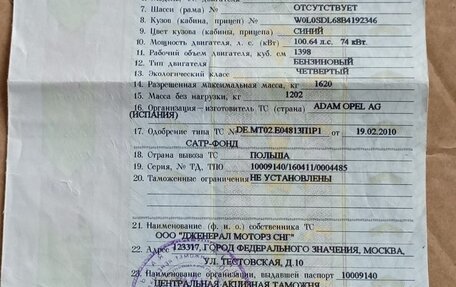 7. Шасси (рама) № ОТСУТСТВУЕТ
8. Кузов (кабина, прицеп) № W0L0SDL68B4192346
9. Цвет кузова (кабины, прицепа) СИНИЙ
10. Мощность двигателя, л. с. (кВт) 100.64 л.с. 74 кВт.
11. Рабочий объем двигателя, куб. см 1398
12. Тип двигателя БЕНЗИНОВЫЙ
13. Экологический класс ЧЕТВЕРТЫЙ
14. Разрешенная максимальная масса, кг 1620
15. Масса без нагрузки, кг 1202
16. Организация-изготовитель ТС (страна) ADAM OPEL AG
(ИСПАНИЯ)
17. Одобрение типа ТС № DE.MT02.E04813П1Р1 от 19.02.2010
САТР-ФОНД
18. Страна вывоза ТС ПОЛЬША
19. Серия, № ТД, ТПО 10009140/160411/0004485
20. Таможенные ограничения НЕ УСТАНОВЛЕНЫ
21. Наименование (ф. и. о.) собственника ТС
ООО "ДЖЕНЕРАЛ МОТОРЗ СНГ"
22. Адрес 123317, ГОРОД ФЕДЕРАЛЬНОГО ЗНАЧЕНИЯ, МОСКВА,
УЛ. ТЕСТОВСКАЯ, Д.10
23. Наименование организации, выдавшей паспорт 10009140
ЦЕНТРАЛЬНАЯ АКЦИЗНАЯ ТАМОЖНЯ